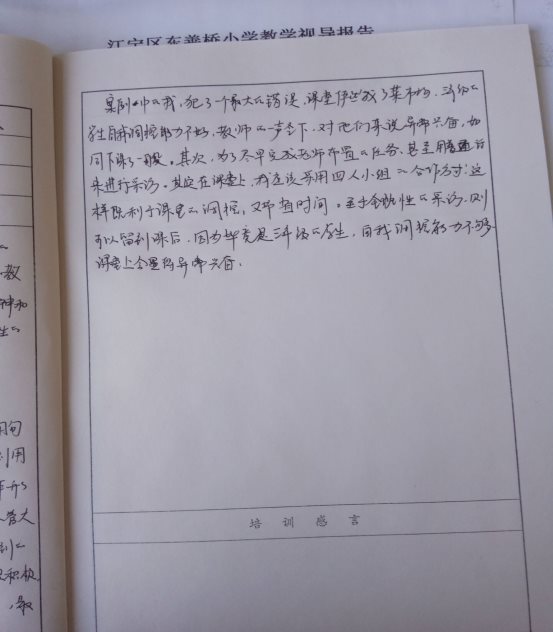 江宁区东善桥小学教学视导报告
案例中的我,犯了一个最大的错误,课堂俨然成了菜市场,三年级的
学生自我调控能力不好,教师的一声令下,对他们来说异常兴奋,如
同下课了一般。其次,为了尽早完成老师布置的任务、甚至用
来进行采访。其实在课堂上,我应该采用四人小组的合作方式:这
样既利于课堂的调控,又节省时间。至于全班性的采访,则
可以留到课后,因为毕竟是三年级的学生,自我调控能力不够
课堂上会显得异常兴奋。
培训感言
教
神和
生的
用句
利用
管大
积极